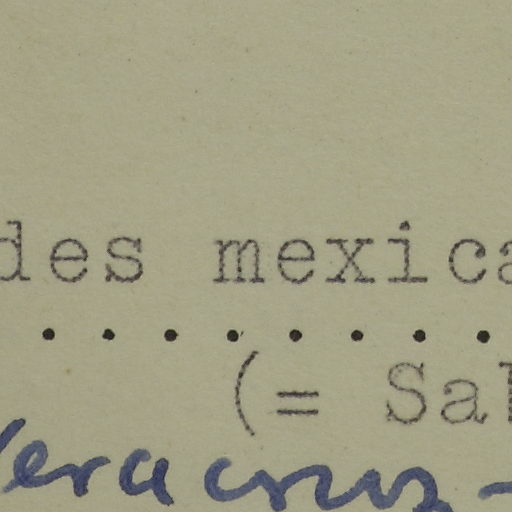 des mexica
. . . . . . . .
(= Sal
Veracruz-